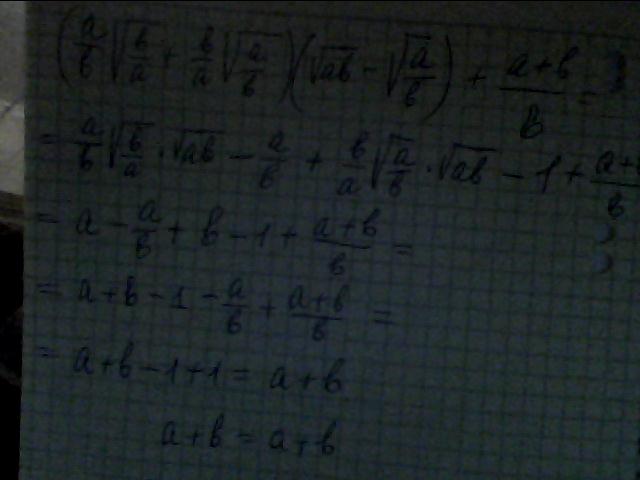 (a/b √(b/a) + b/a √(a/b))(√ab − √(a/b)) + (a+b)/b =
= a/b √(b/a) · √ab − a/b + b/a √(a/b) · √ab − 1 + (a+b)/b
= a − a/b + b − 1 + (a+b)/b =
= a+b − 1 − a/b + (a+b)/b =
= a+b−1+1 = a+b
a+b = a+b